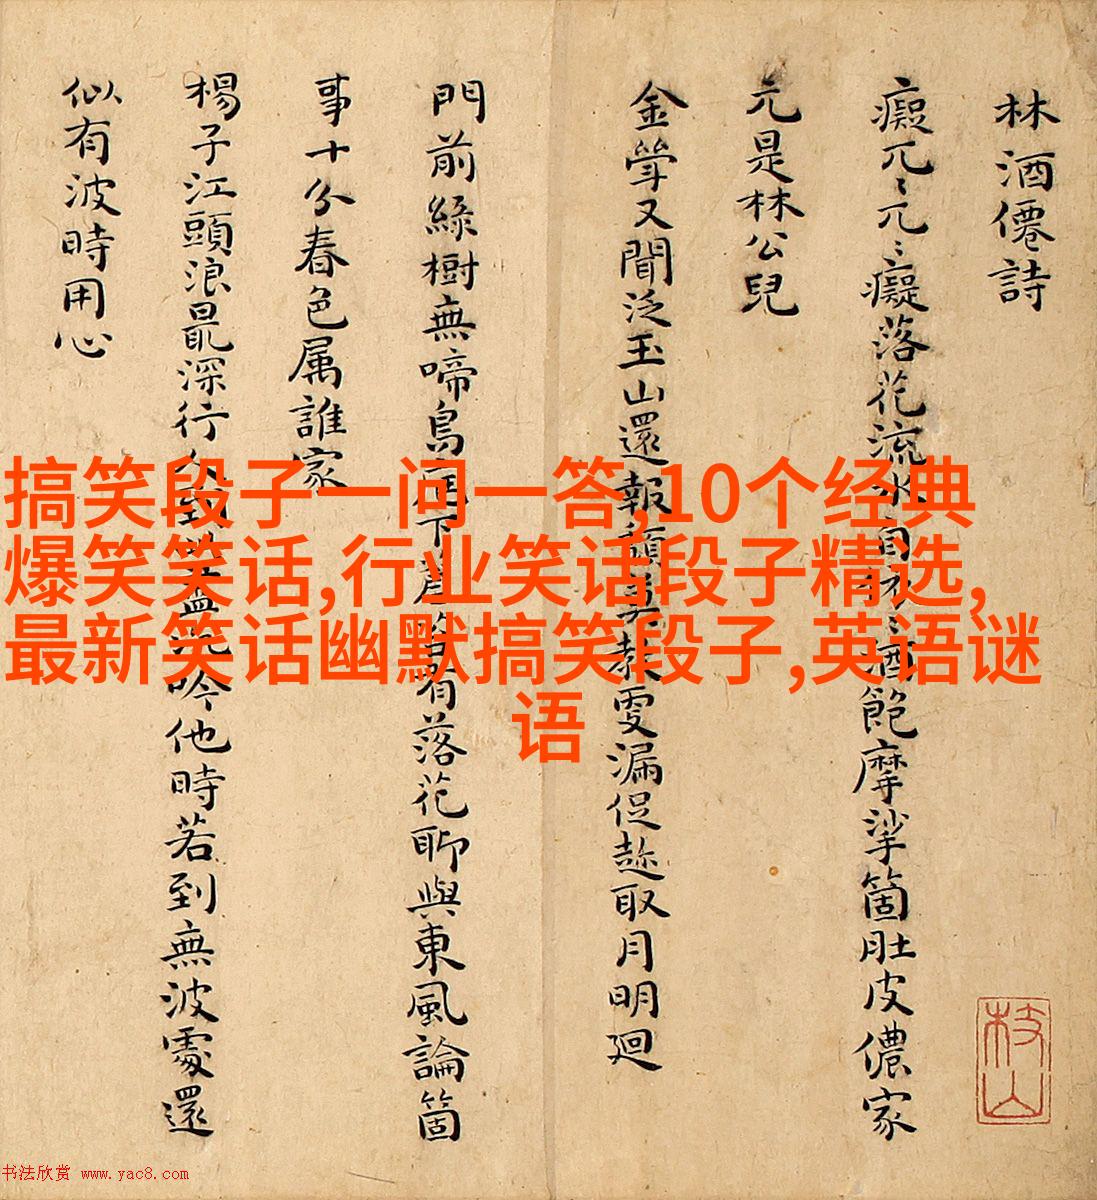 林酒僊詩
癡兀〻兀〻癡落花流水自酒飽摩挲箇肚皮儂家
元是林公兒
金斝又聞泛玉山還報頹莫教更漏促趁取月明迴
門前綠樹無啼鳥庭下蒼苔有落花聊與東風論箇
事十分春色属誰家
楊子江頭浪最深行人到此盡沉吟他時若到無波處還
似有波時用心
枝山
搞笑段子一问一答,10个经典
爆笑笑话,行业笑话段子精选,
最新笑话幽默搞笑段子,英语谜
语
书法欣赏 www.yac8.com